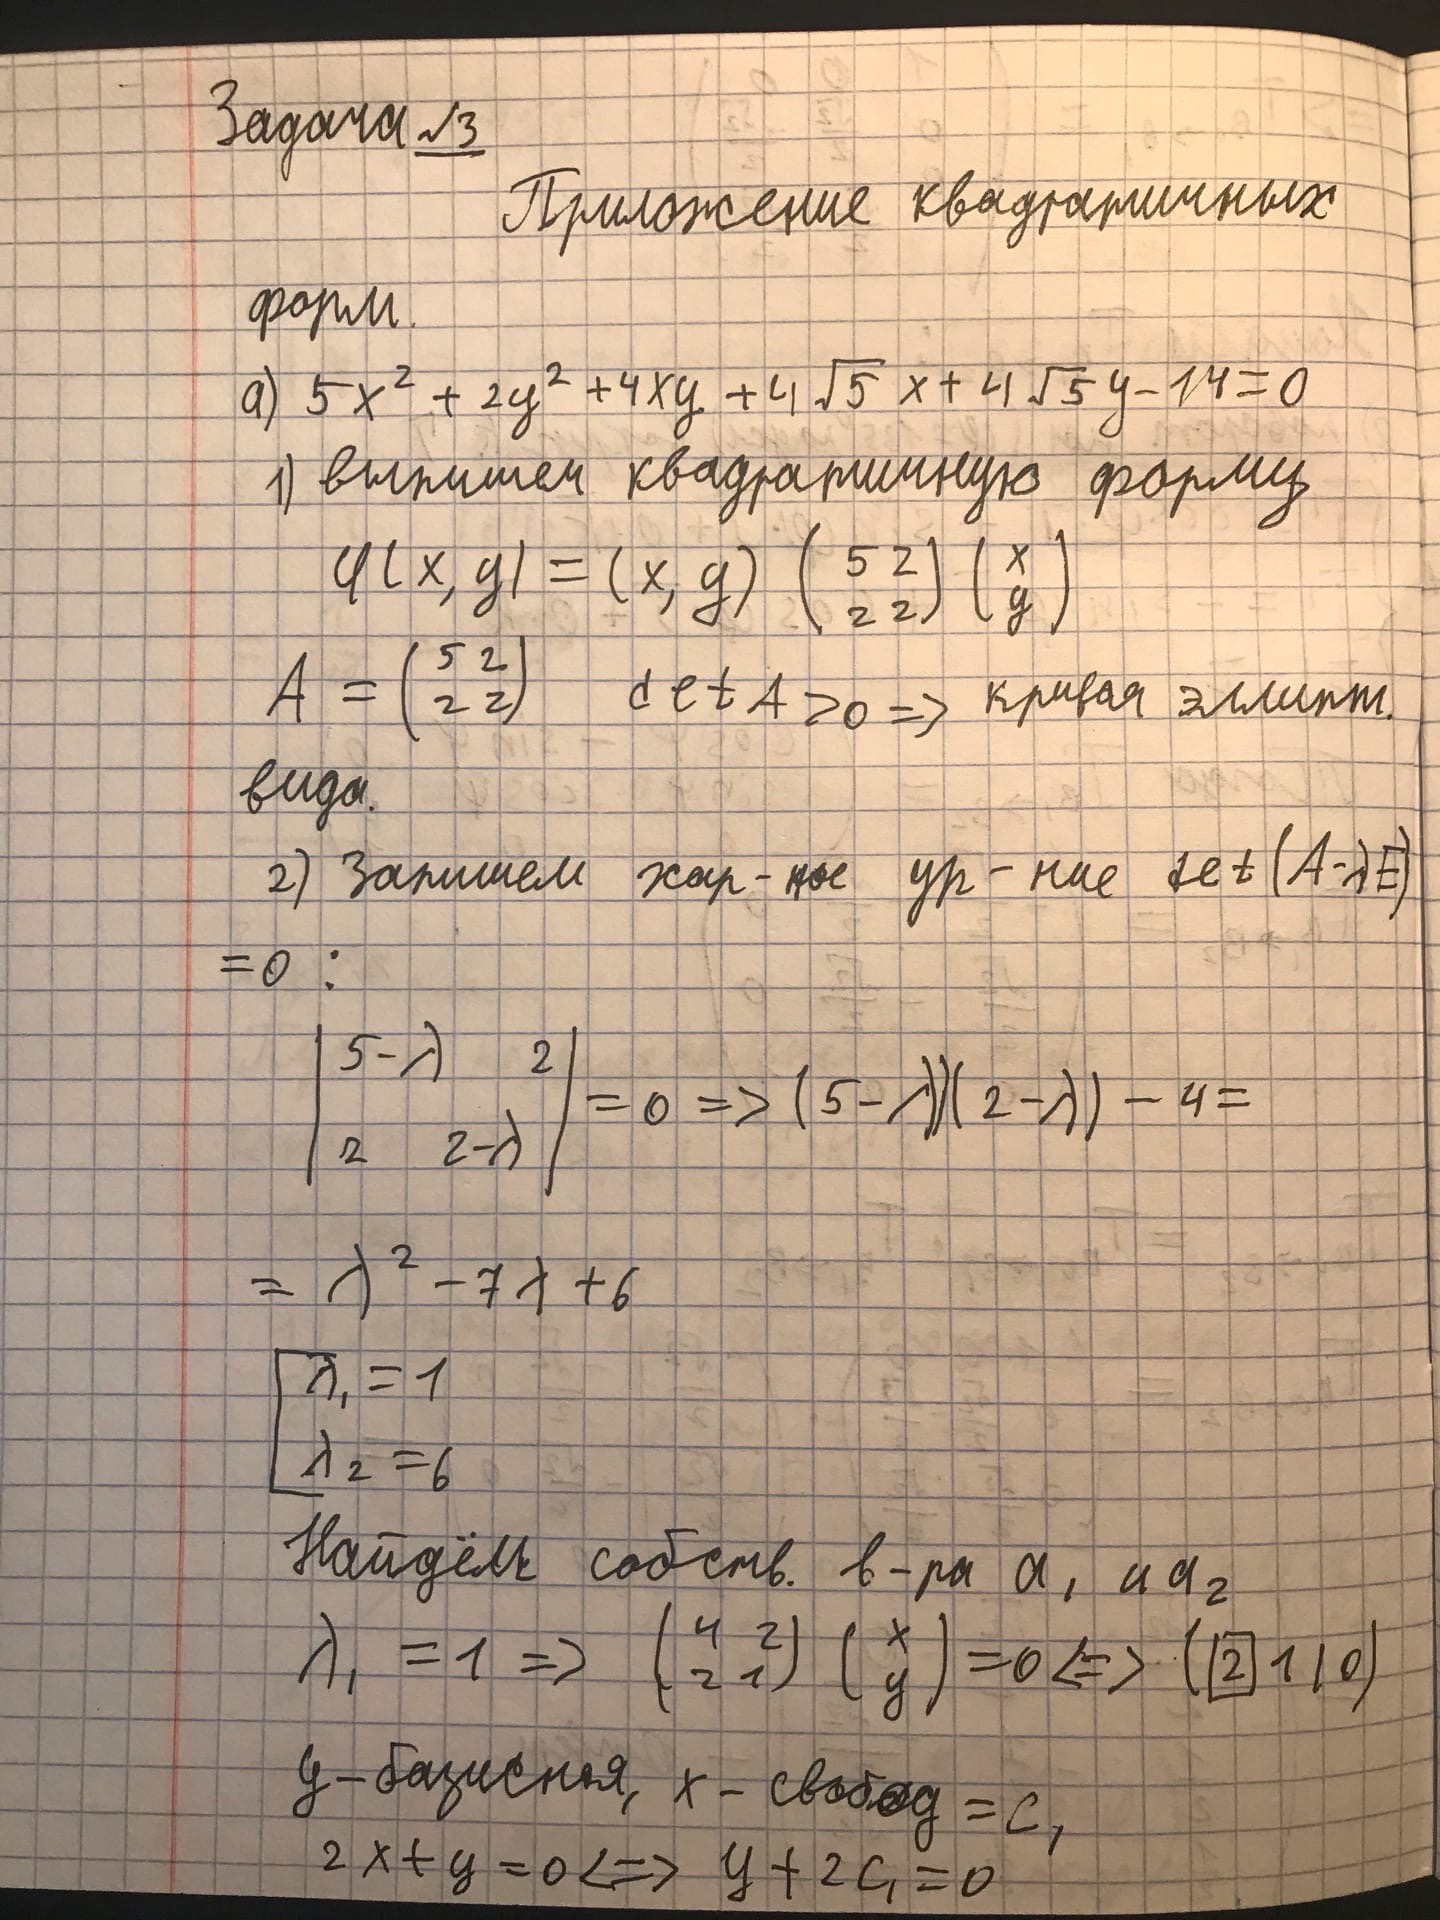 Задача №3
Приложение квадратичных
форм.
а) 5x² + 2y² + 4xy + 4√5 x + 4√5 y - 14 = 0
1) выпишем квадратичную форму
φ(x, y) = (x, y) (5 2; 2 2) (x; y)
A = (5 2; 2 2) det A > 0 => кривая эллипт.
вида.
2) Запишем хар-ное ур-ние det(A-λE)
= 0 :
|5-λ 2; 2 2-λ| = 0 => (5-λ)(2-λ) - 4 =
= λ² - 7λ + 6
[λ₁ = 1
λ₂ = 6
Найдём собств. в-ра a₁ и a₂
λ₁ = 1 => (4 2; 2 1) (x; y) = 0 <=> (2 1 | 0)
y-базисная, x - свобод = C₁
2x + y = 0 <=> y + 2C₁ = 0